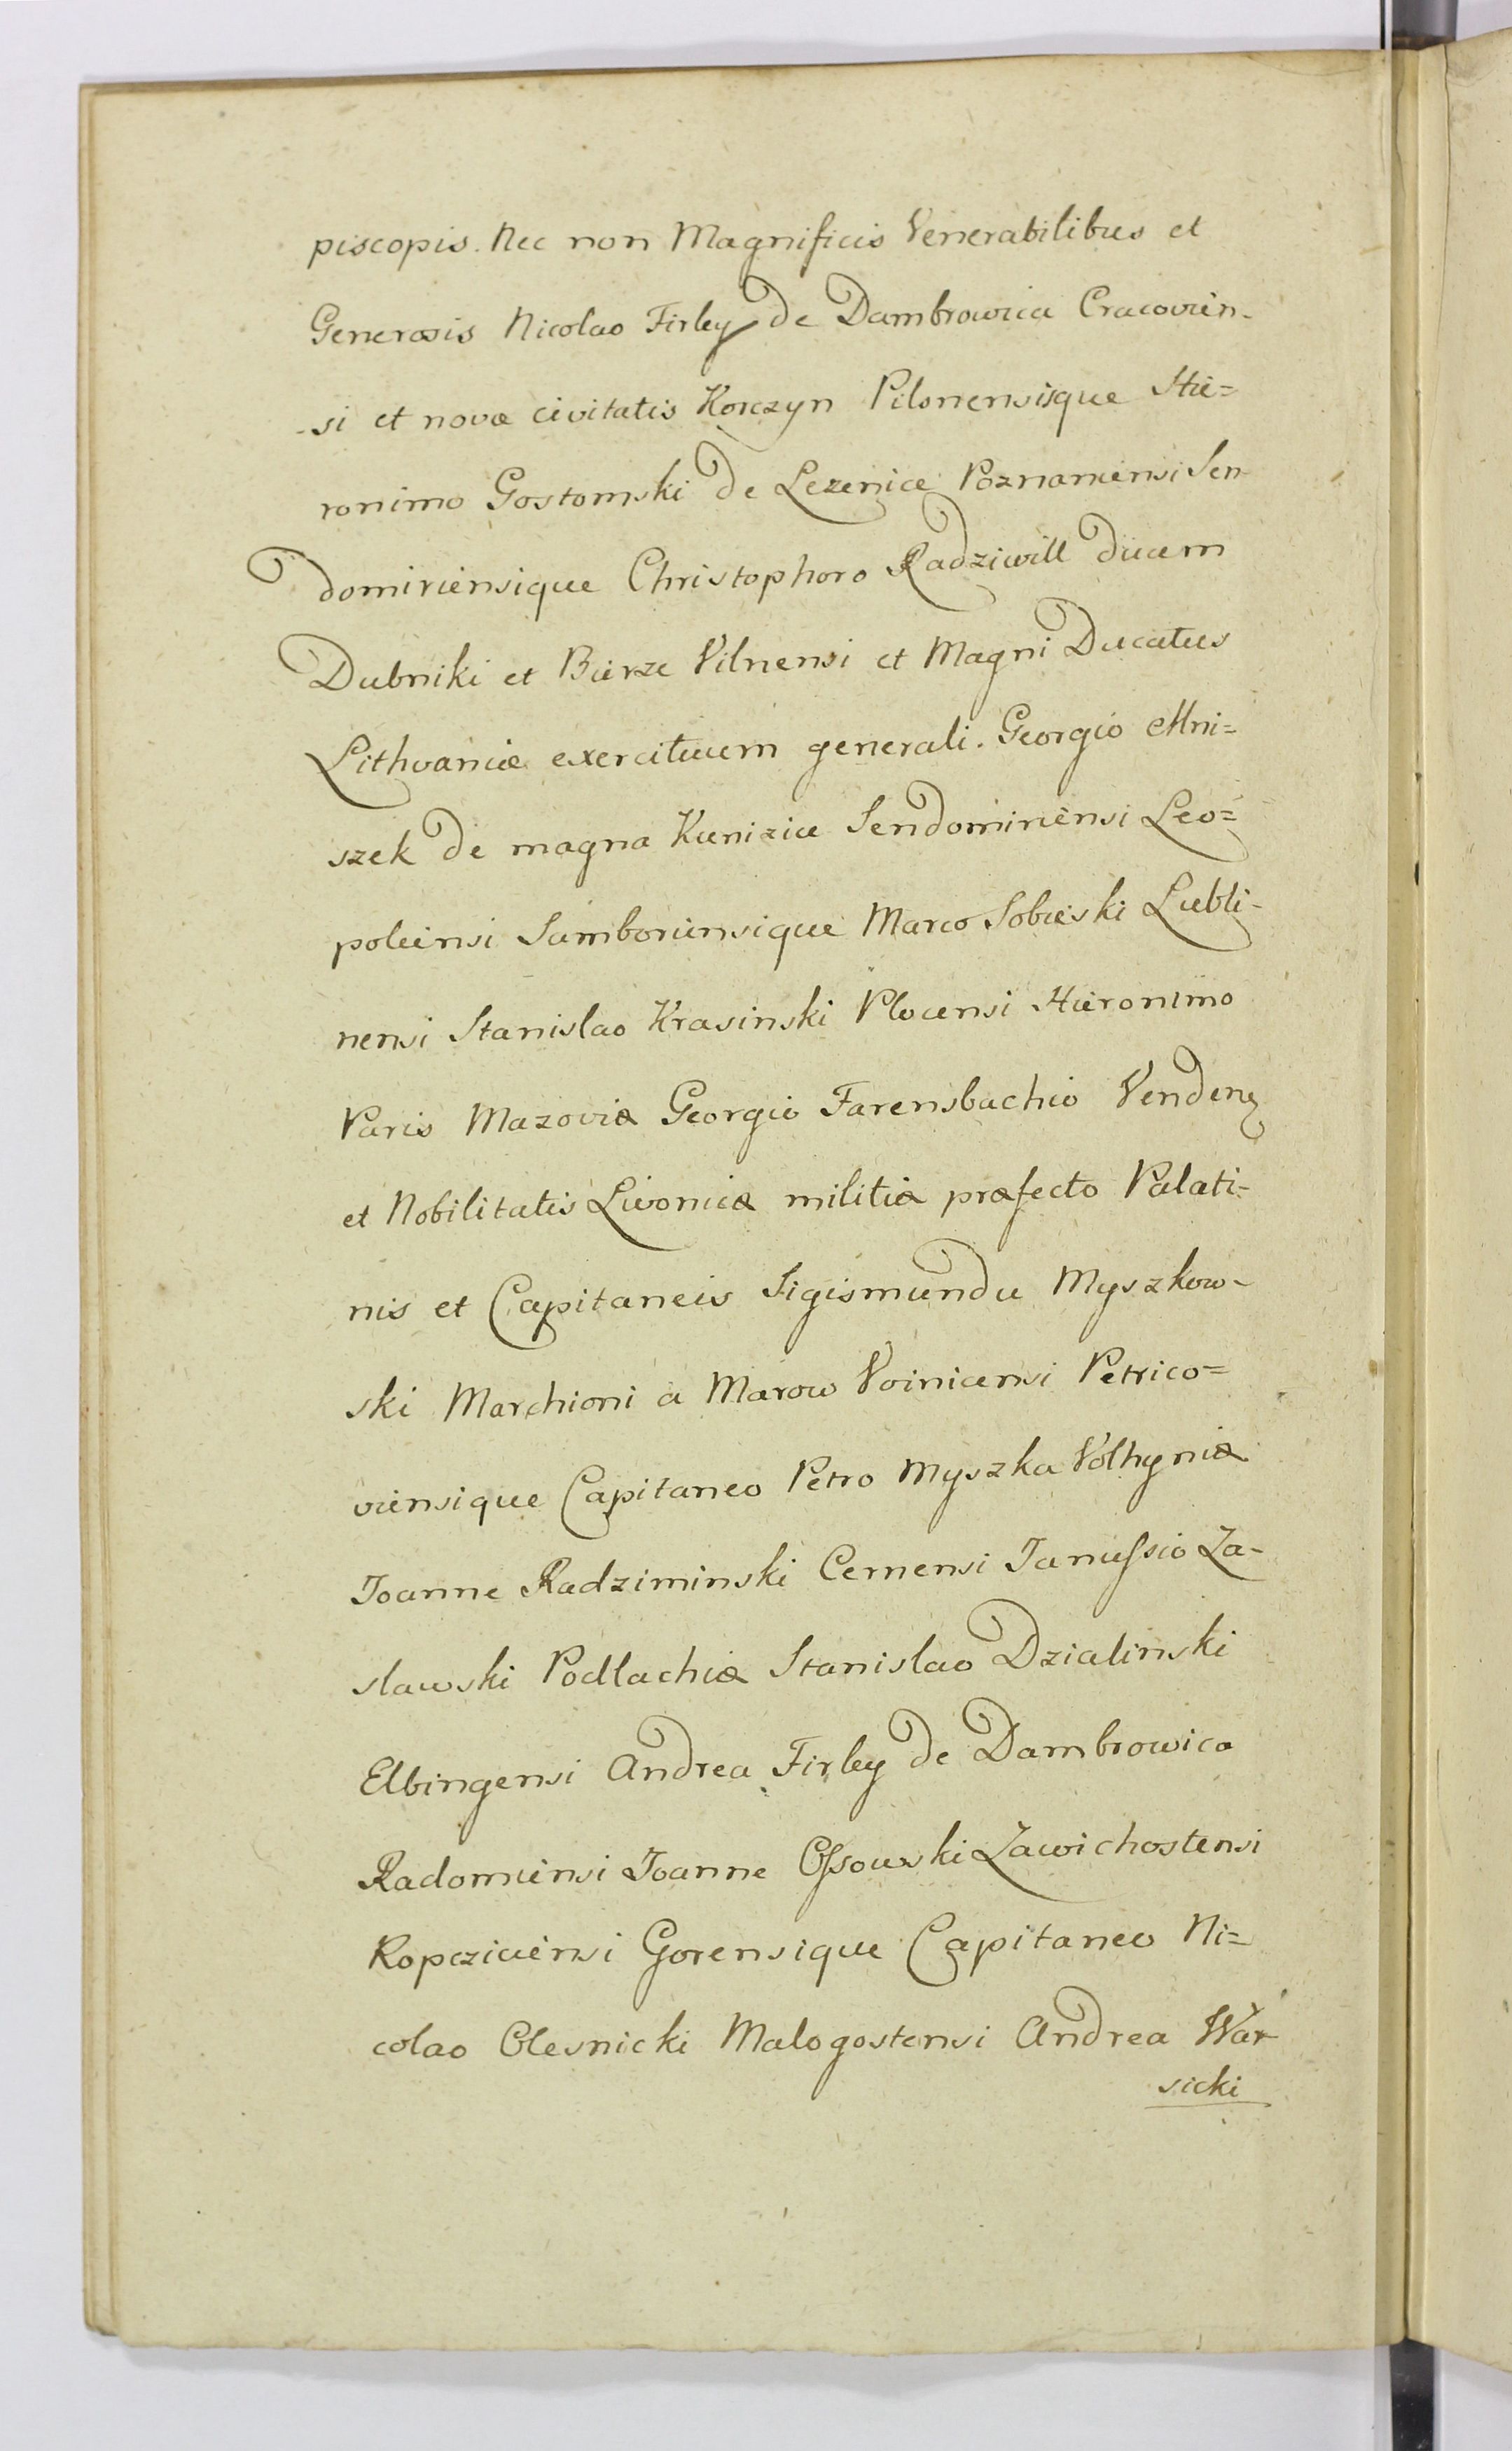 piscopis. Nec non Magnificis Venerabilibus et
Generosis Nicolao Firley de Dambrowica Cracovien-
-si et novæ civitatis Korczyn Pilonensisque Hie=
ronimo Gostomski de Lezenice Poznaniensi Sen-
domiriensique Christophoro Radziwill ducem
Dubniki et Bierze Vilnensi et Magni Ducatus
Lithvaniæ exercituum generali. Georgio Mni=
szek de magna Kunizice Sendomiriensi Leo=
poliensi Samboriensique Marco Sobieski Lubli-
nensi Stanislao Krasinski Plocensi Hieronimo
Paris Mazoviæ Georgio Farensbachio Venden
et Nobilitatis Livonicæ militiæ præfecto Palati-
nis et Capitaneis Sigismundu Myszkow-
ski Marchioni a Marow Voinicensi Petrico=
viensique Capitaneo Petro Myszka Volhyniæ
Joanne Radziminski Cernensi Janussio Za-
slawski Podlachiæ Stanislao Dzialinski
Elbingensi Andrea Firley de Dambrowica
Radomiensi Joanne Ossowski Zawichostensi
Ropcziciensi Gorensique Capitaneo Ni=
colao Olesnicki Malogostensi Andrea War-
sicki